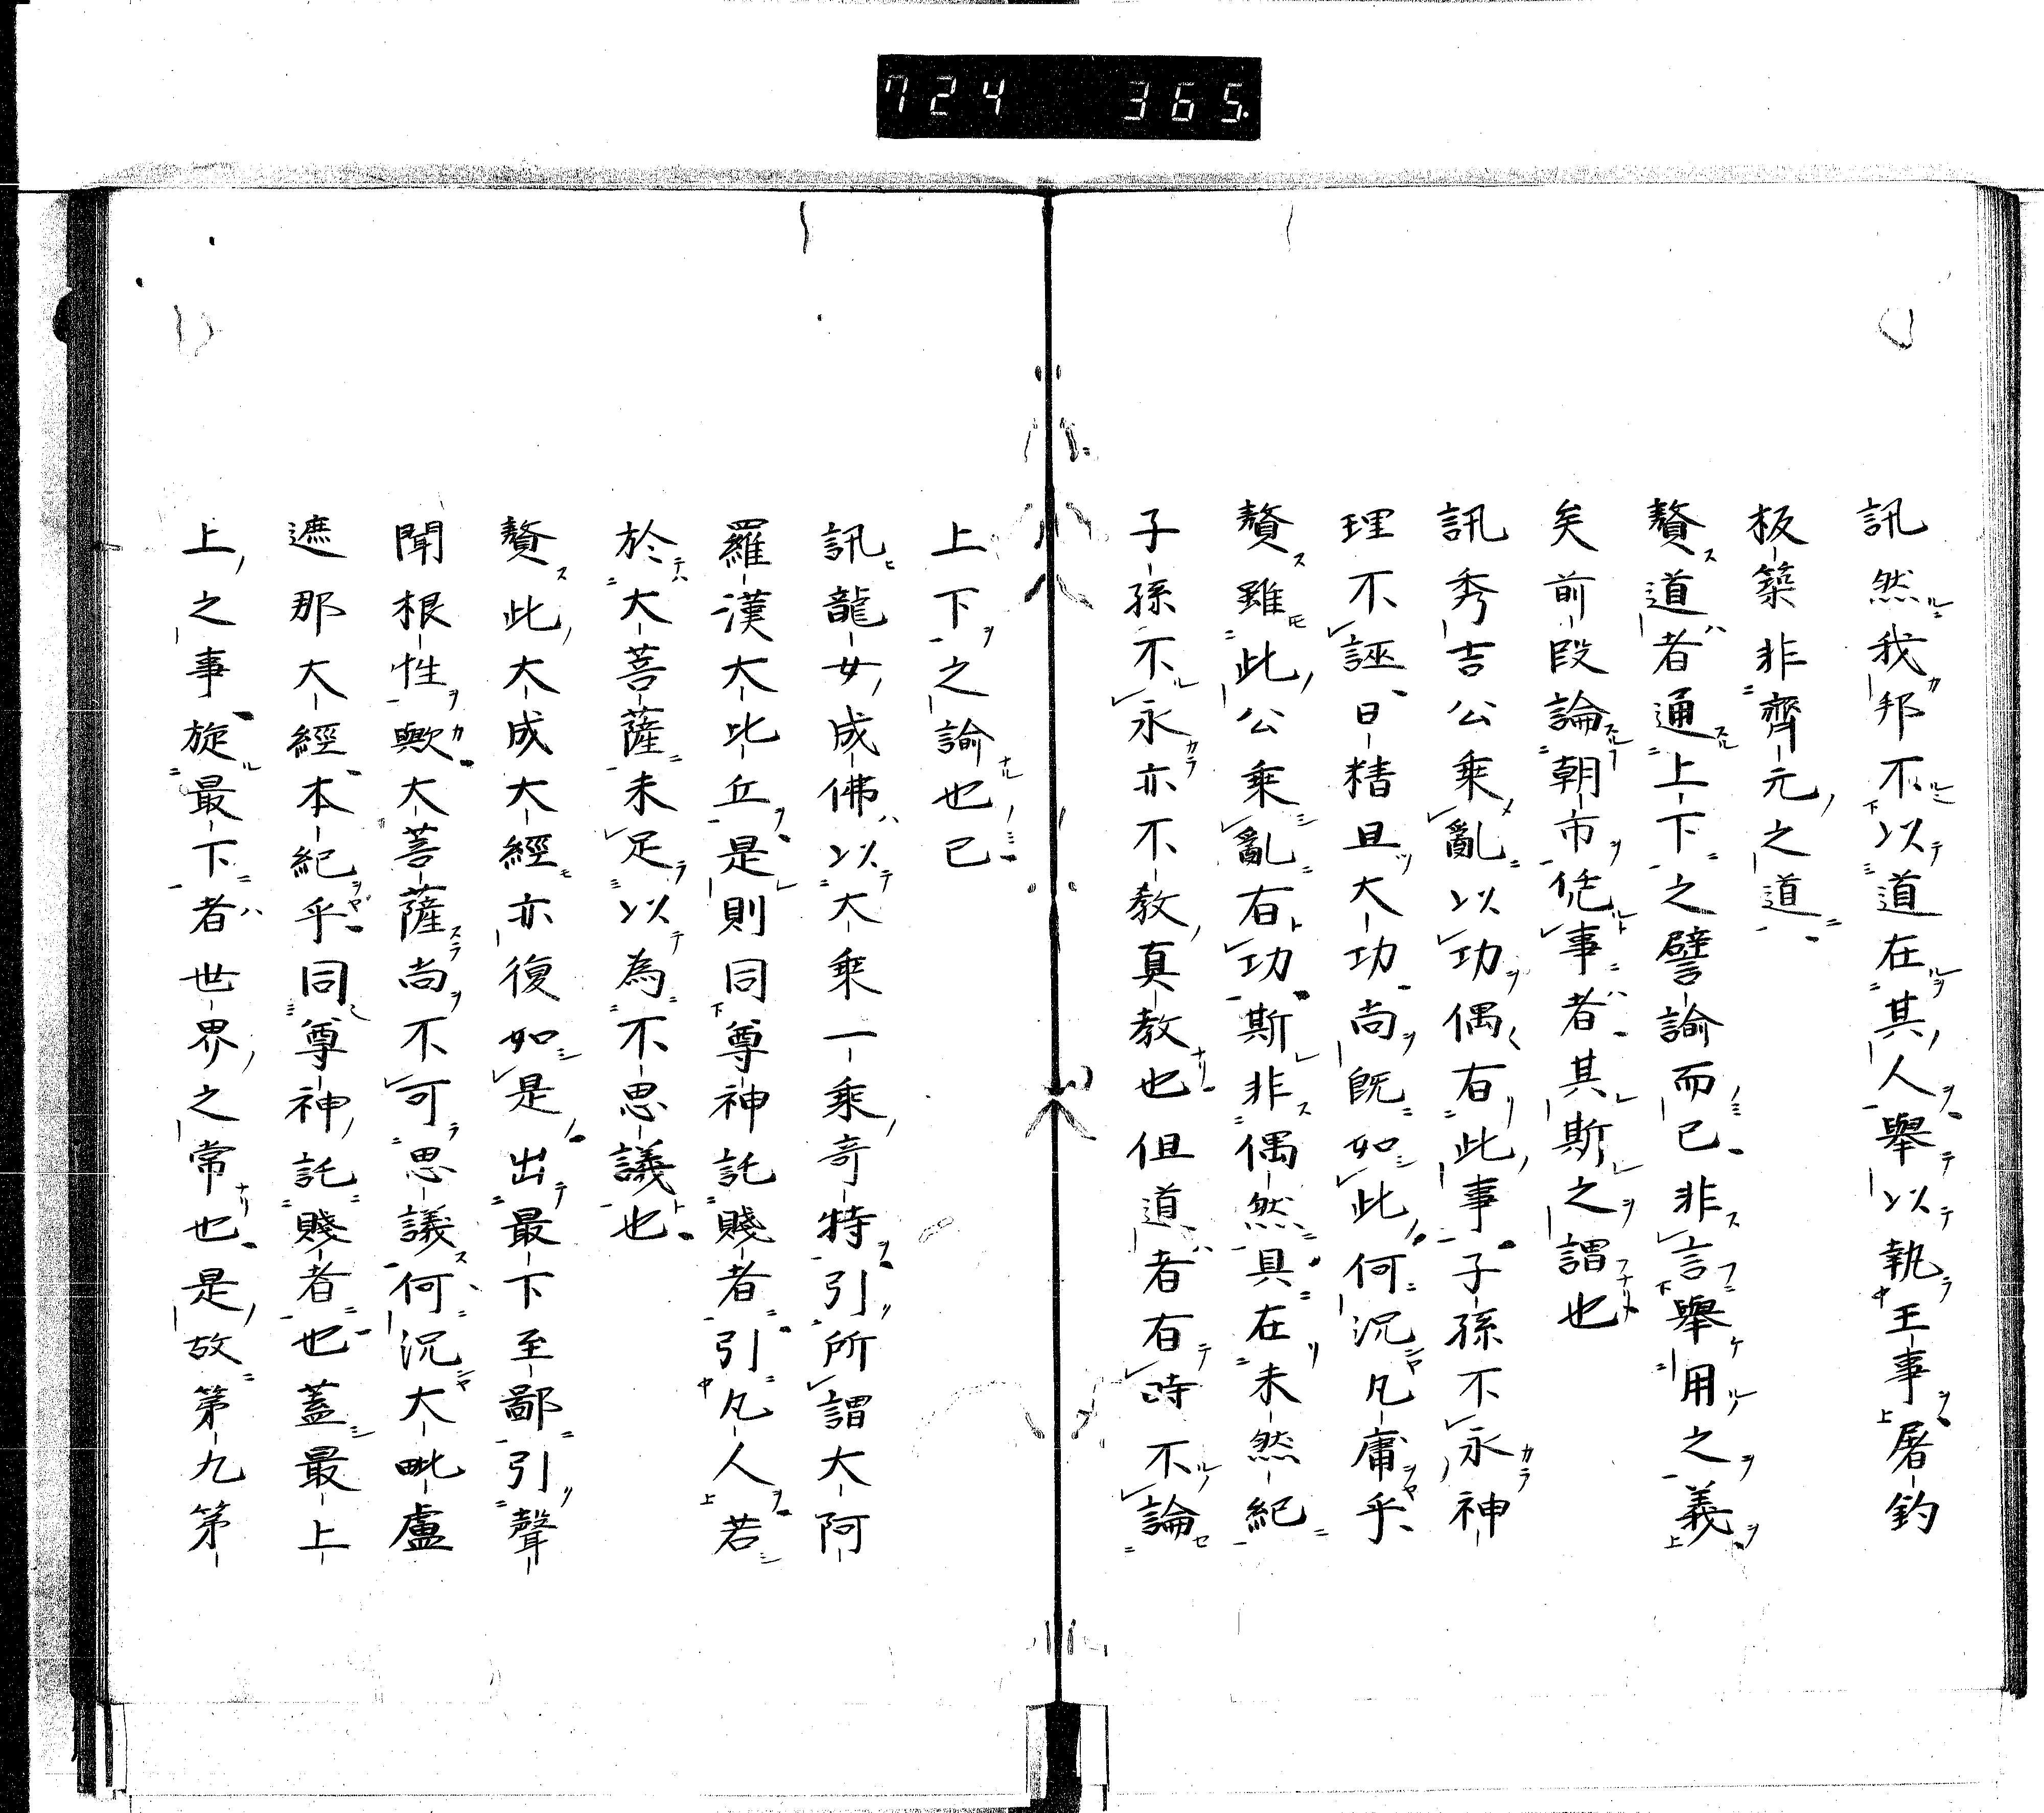 724 365.
訊然我邦不以道在其人舉以執王事屠釣
板築非齊元之道
贅道者通上下之譬諭而已非言舉用之義
矣前段論朝市恁事者其斯之謂也
訊秀吉公乘亂以功偶有此事子孫不永神
理不誣日精且大功尚既如此何況凡庸乎
贅雖此公乘亂有功斯非偶然具在未然紀
子孫不永亦不教真教也但道者有時不論
上下之諭也已
訊龍女成佛以大乘一乘奇特引所謂大阿
羅漢大比丘是則同尊神託賤者引凡人若
於大菩薩未足以為不思議也
贅此大成大經亦復如是出最下至鄙引聲
聞根性歟大菩薩尚不可思議何況大毗盧
遮那大經本紀乎同尊神託賤者也蓋最上
上之事旋最下者世界之常也是故第九第